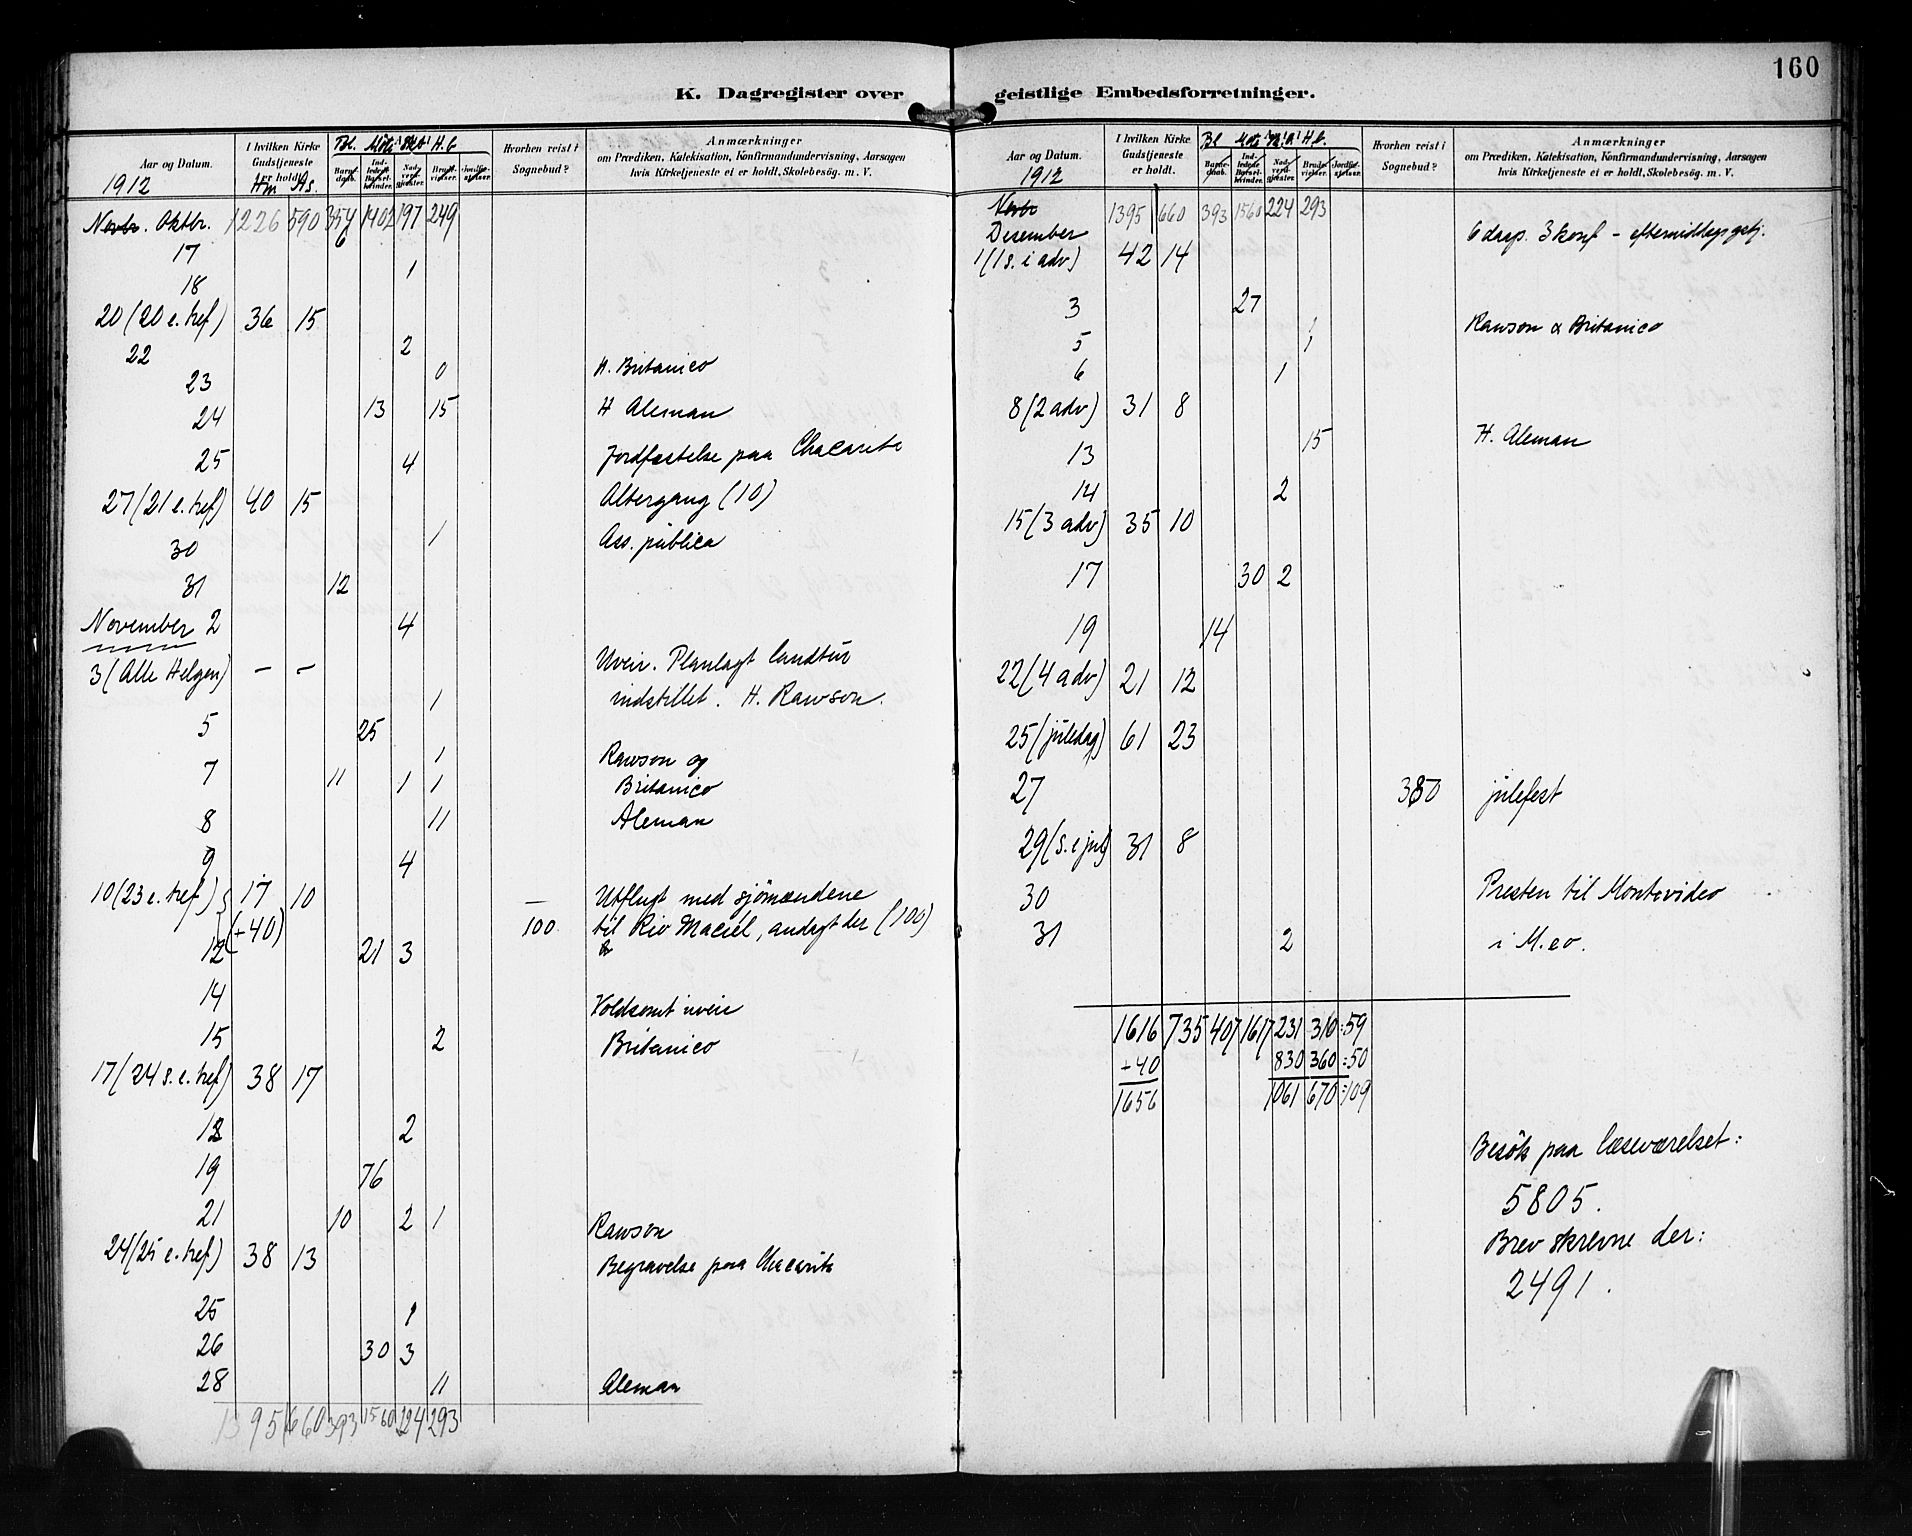 160
K. Dagregister over geistlige Embedsforretninger.
Aar og Datum. 1912
I hvilken Kirke Gudstjeneste er holdt.
Hm As.
Bl. Møte Skb. H. b
Barnedaab. Indledede Barselkvinder. Nadverdgjester. Brudevielser. Jordfæstelser.
Hvorhen reist i Sognebud?
Anmærkninger
om Prædiken, Katekisation, Konfirmandundervisning, Aarsagen
hvis Kirketjeneste ei er holdt, Skolebesøg. m. V.
Novbr. Oktbr. 1226 590 354 1402 197 249
17 6
18 1
20 (20 e. tref) 36 15
22 2
23 0 H. Britanico
24 13 15 H Aleman
25 4 Jordfæstelse paa Chacarita
27 (21 e. tref) 40 15 Altergang (10)
30 1 Ass. publica
31 12
November 2 4
3 (Alle Helgen) – – Uveir. Planlagt landtur
1 indstillet. H. Rawson.
5 25
7 1 Rawson og
11 1 1 Britanico
8 11 Aleman
9 4
10 (23 e. tref) 17 10 — Utflugt med sjömændene
(+40) 100 til Rio Maciel, andagt der (100)
12 21 3
14 Voldsomt uveir
15 2 Britanico
17 (24 s. e. tref) 38 17
18 2
19 76
21 10 2 1 Rawson
24 (25 e. tref) 38 13 Begravelse paa Chacarita
25 1
26 30 3
28 11 Aleman
1395 660 393 1560 224 293
Aar og Datum. 1912
I hvilken Kirke Gudstjeneste er holdt.
Bl Møte H. b.
Barnedaab. Indledede Barselkvinder. Nadverdgjester. Brudevielser. Jordfæstelser.
Hvorhen reist i Sognebud?
Anmærkninger
om Prædiken, Katekisation, Konfirmandundervisning, Aarsagen
hvis Kirketjeneste ei er holdt, Skolebesøg. m. V.
Novbr 1395 660 393 1560 224 293
Desember 6 daap. 3 konf – eftermiddagsgstj.
1 (1 s. i adv) 42 14
3 27
1 Rawson & Britanico
5 1
6 1
8 (2 adv) 31 8
13 15 H. Aleman
14 2
15 (3 adv) 35 10
17 30 2
19 14
22 (4 adv) 21 12
25 (juledag) 61 23
27 350 julefest
29 (s. e jul) 31 8
30 Presten til Montevideo
31 2 i M.eo.
1616 735 407 1617 231 310 :59
+40 830 360 :50
1656 1061 670 :109
Besök paa læseværelset:
5805.
Brev skrevne der:
2491.